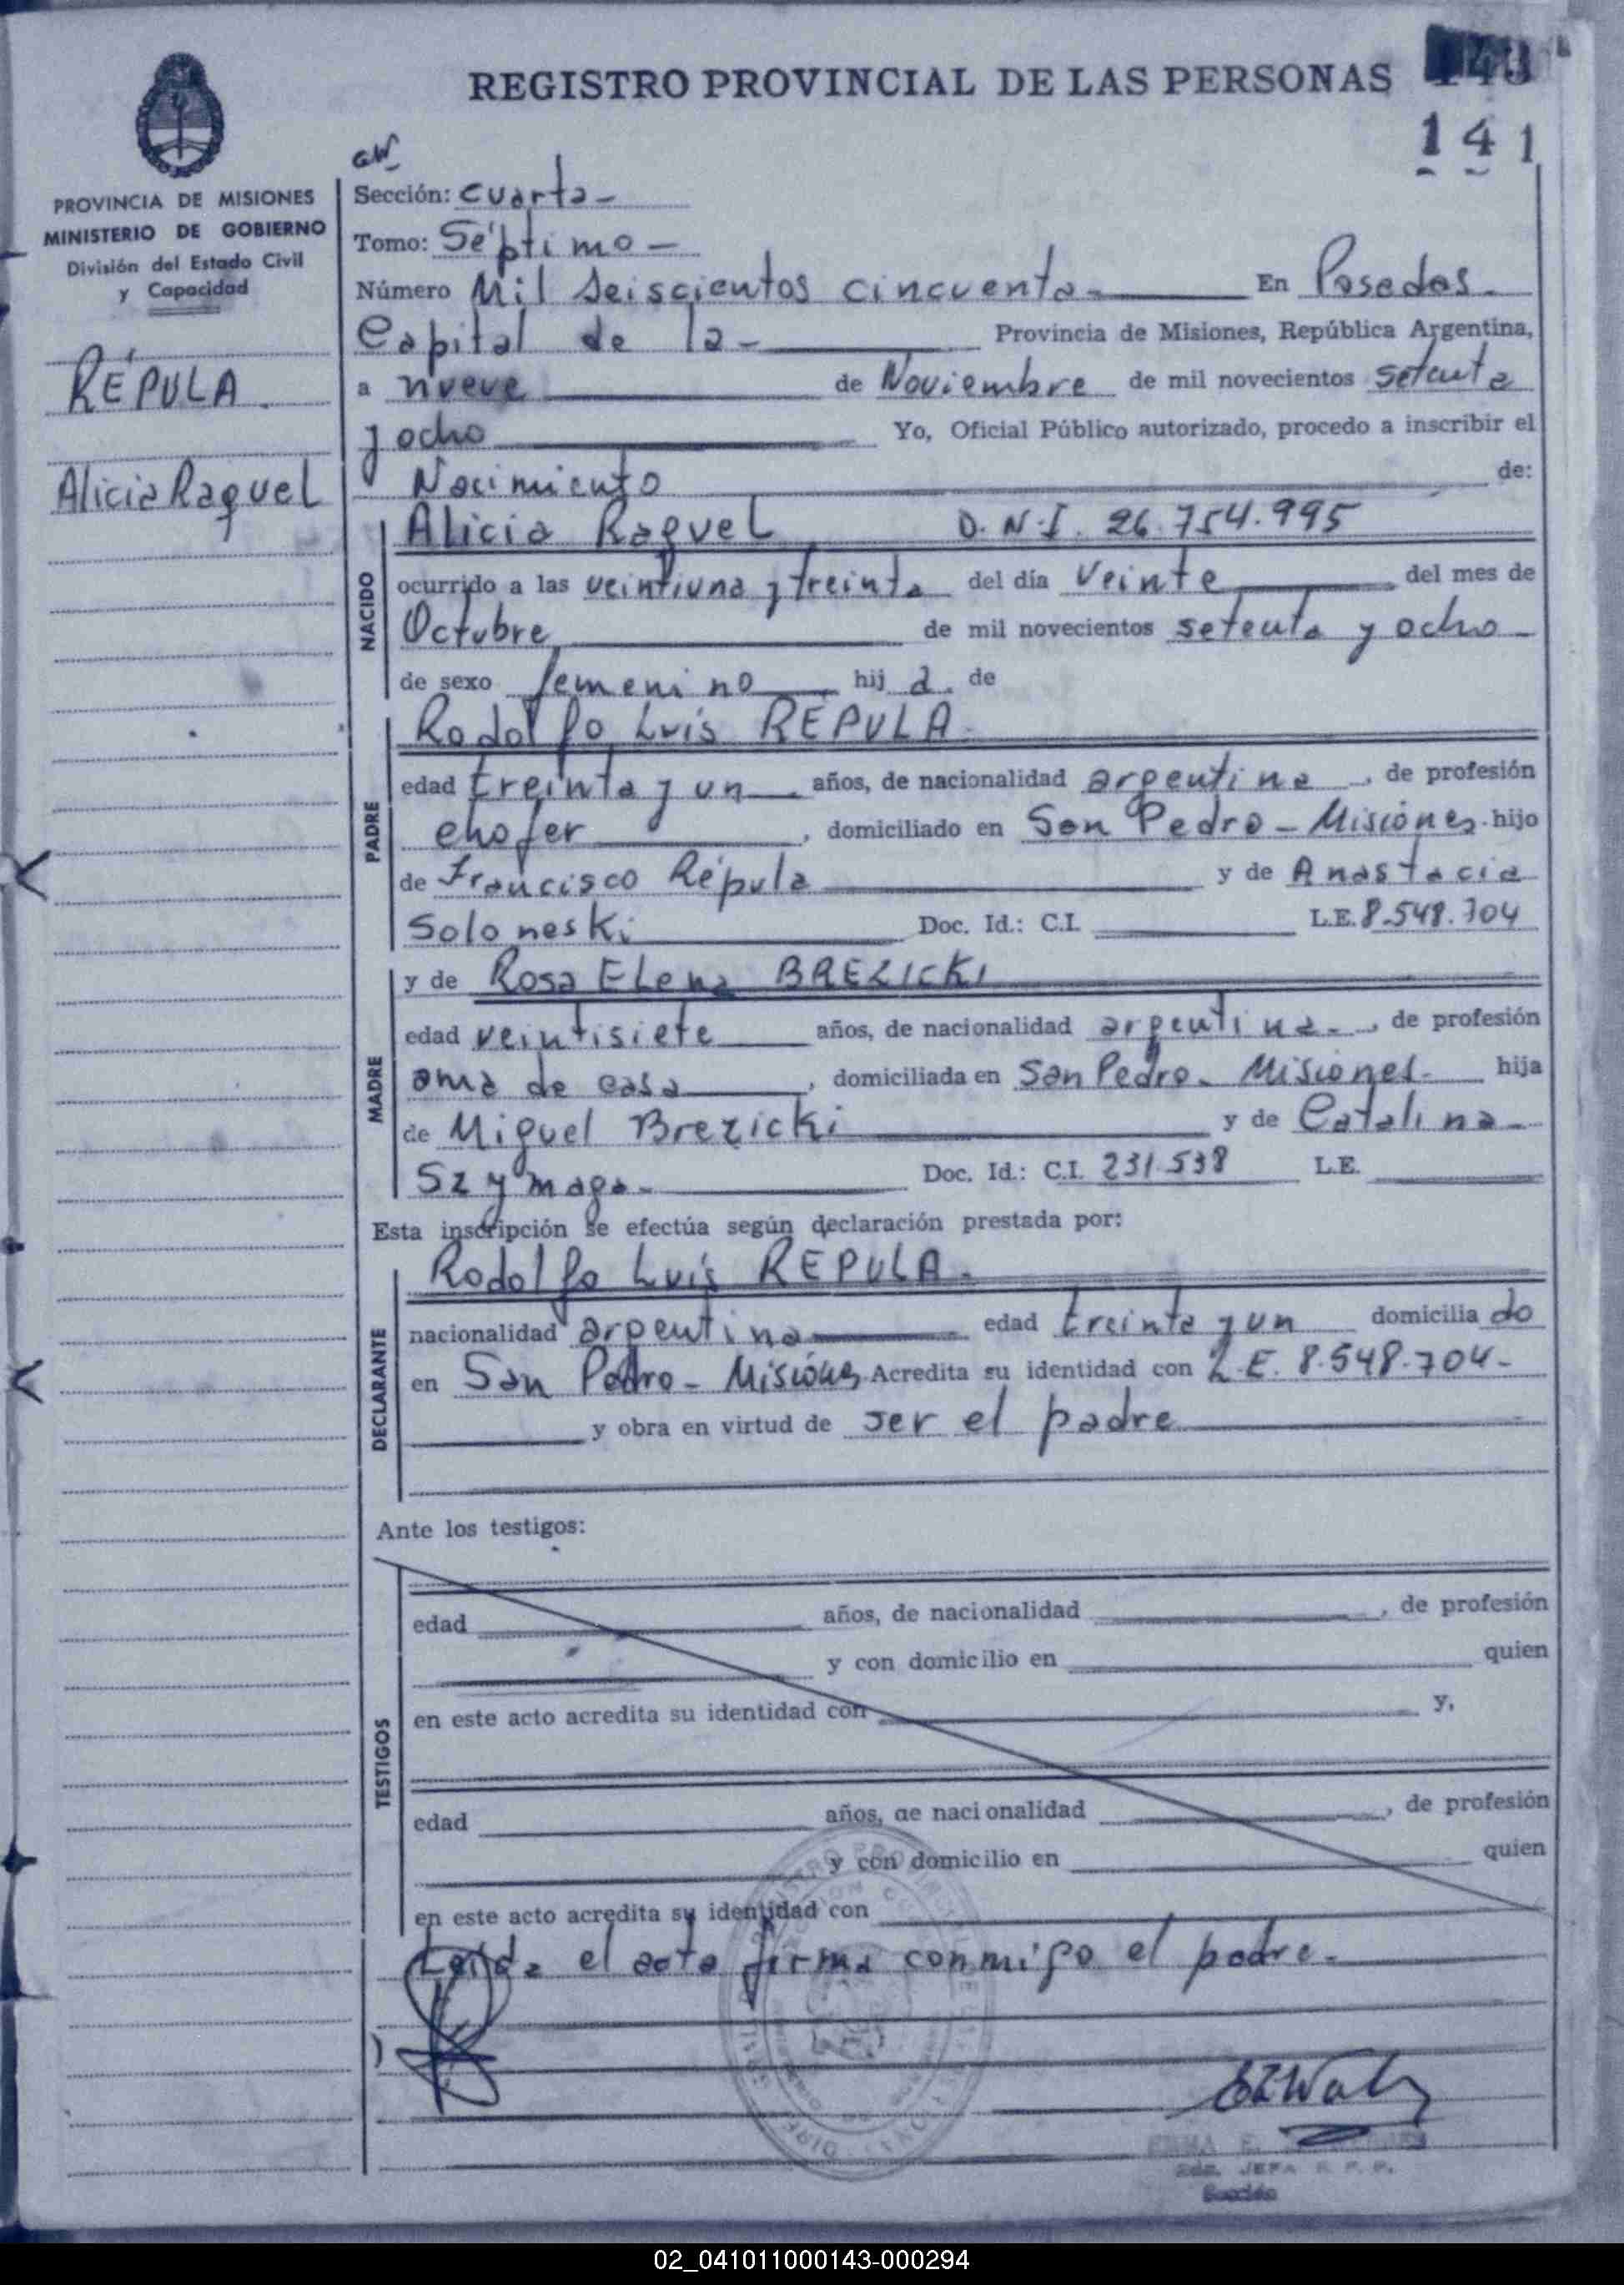 REGISTRO PROVINCIAL DE LAS PERSONAS
141
PROVINCIA DE MISIONES
MINISTERIO DE GOBIERNO
División del Estado Civil
y Capacidad
RÉPULA
Alicia Raquel
Sección: cuarta-
Tomo: Séptimo-
Número Mil seiscientos cincuenta- En Posadas-
Capital de la- Provincia de Misiones, República Argentina,
a nueve de Noviembre de mil novecientos setenta
y ocho Yo, Oficial Público autorizado, procedo a inscribir el
Nacimiento de:
NACIDO
Alicia Raquel D.N.I. 26.754.995
ocurrido a las veintiuna y treinta del día veinte del mes de
Octubre de mil novecientos setenta y ocho-
de sexo femenino hij a de
PADRE
Rodolfo Luis RÉPULA-
edad treinta y un años, de nacionalidad argentina, de profesión
chofer, domiciliado en San Pedro-Misiones. hijo
de Francisco Répula y de Anastacia
Soloneski Doc. Id.: C.I. L.E. 8.548.704
MADRE
y de Rosa Elena BREZICKI
edad veintisiete años, de nacionalidad argentina-, de profesión
ama de casa, domiciliada en San Pedro- Misiones- hija
de Miguel Brezicki y de Catalina-
Szymaga- Doc. Id.: C.I. 231.538 L.E.
Esta inscripción se efectúa según declaración prestada por:
DECLARANTE
Rodolfo Luis RÉPULA-
nacionalidad argentina edad treinta y un domicilia do
en San Pedro-Misiones Acredita su identidad con L.E. 8.548.704-
y obra en virtud de ser el padre
Ante los testigos:
TESTIGOS
edad años, de nacionalidad, de profesión
y con domicilio en quien
en este acto acredita su identidad con y,
edad años, de nacionalidad, de profesión
y con domicilio en quien
en este acto acredita su identidad con
Leída el acta firma conmigo el padre-
JEFA R. P. P.
02_041011000143-000294